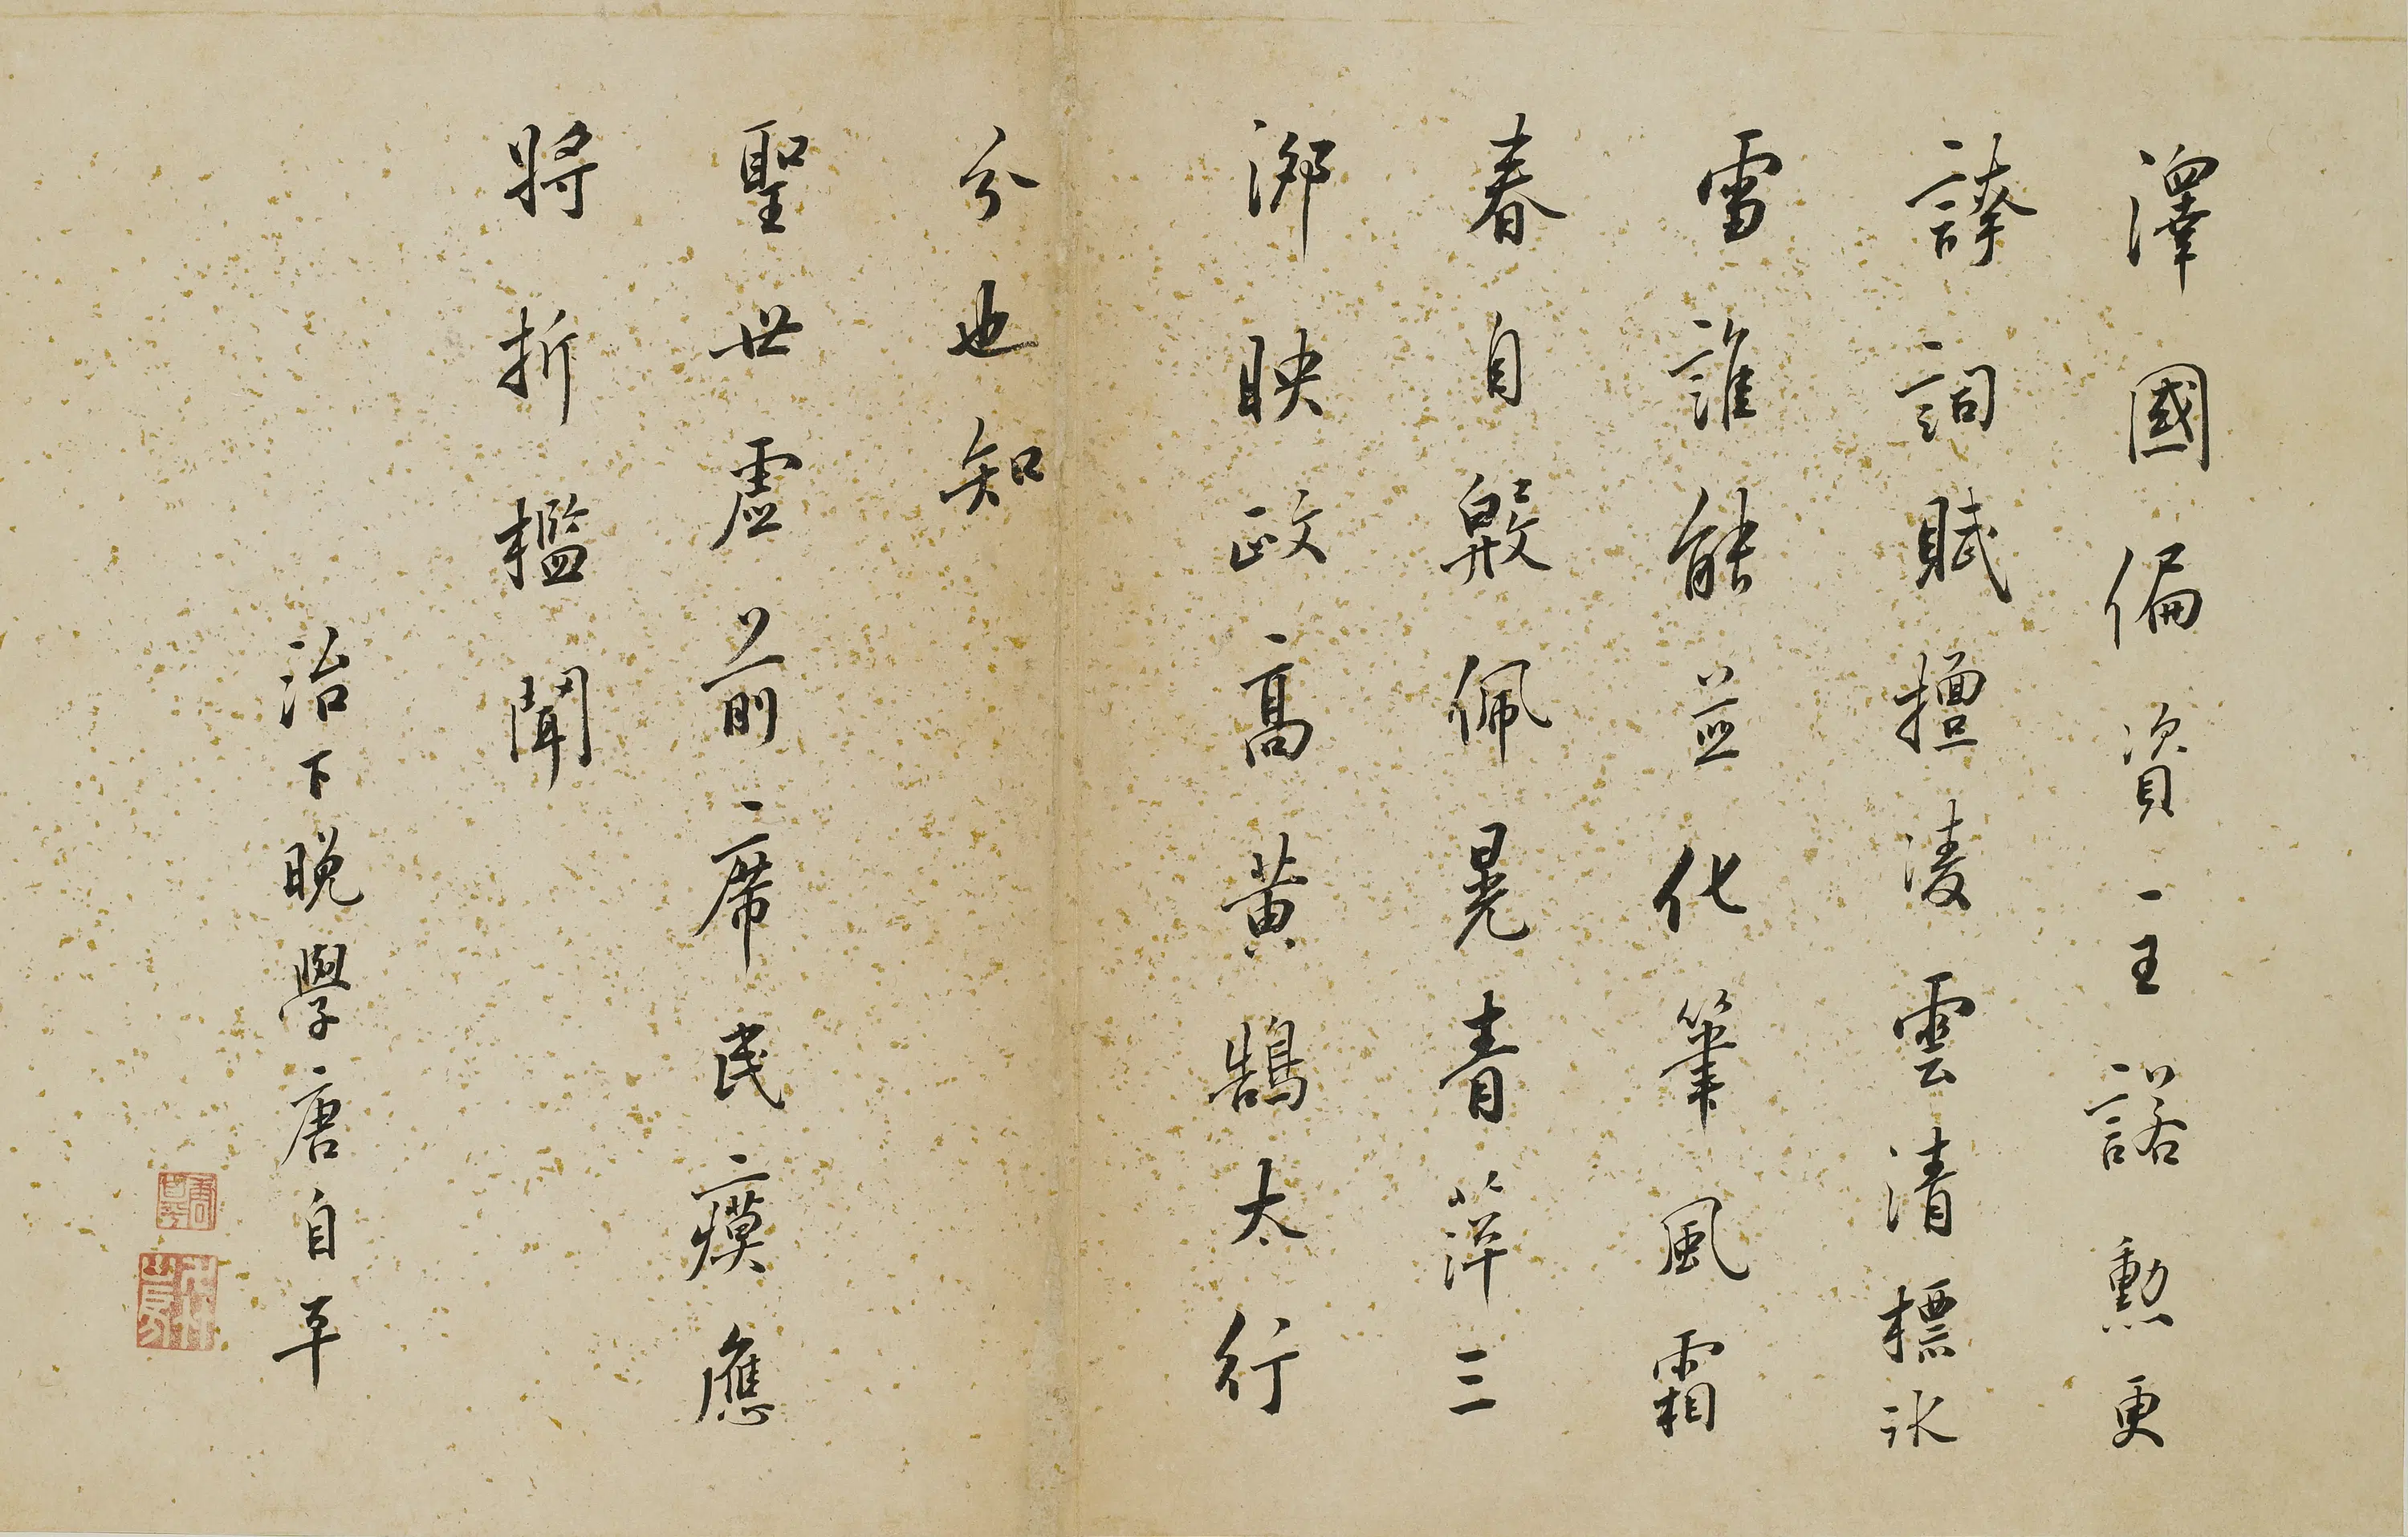 澤國偏資一王諾勲更
詞賦擅凌雲清標氷
雪誰能並化筆風霜
春自佩晃青萍三
映政高黄鵠太行
兮也知
聖世虛前席民瘼應
將折檻聞
治下晚學唐自平